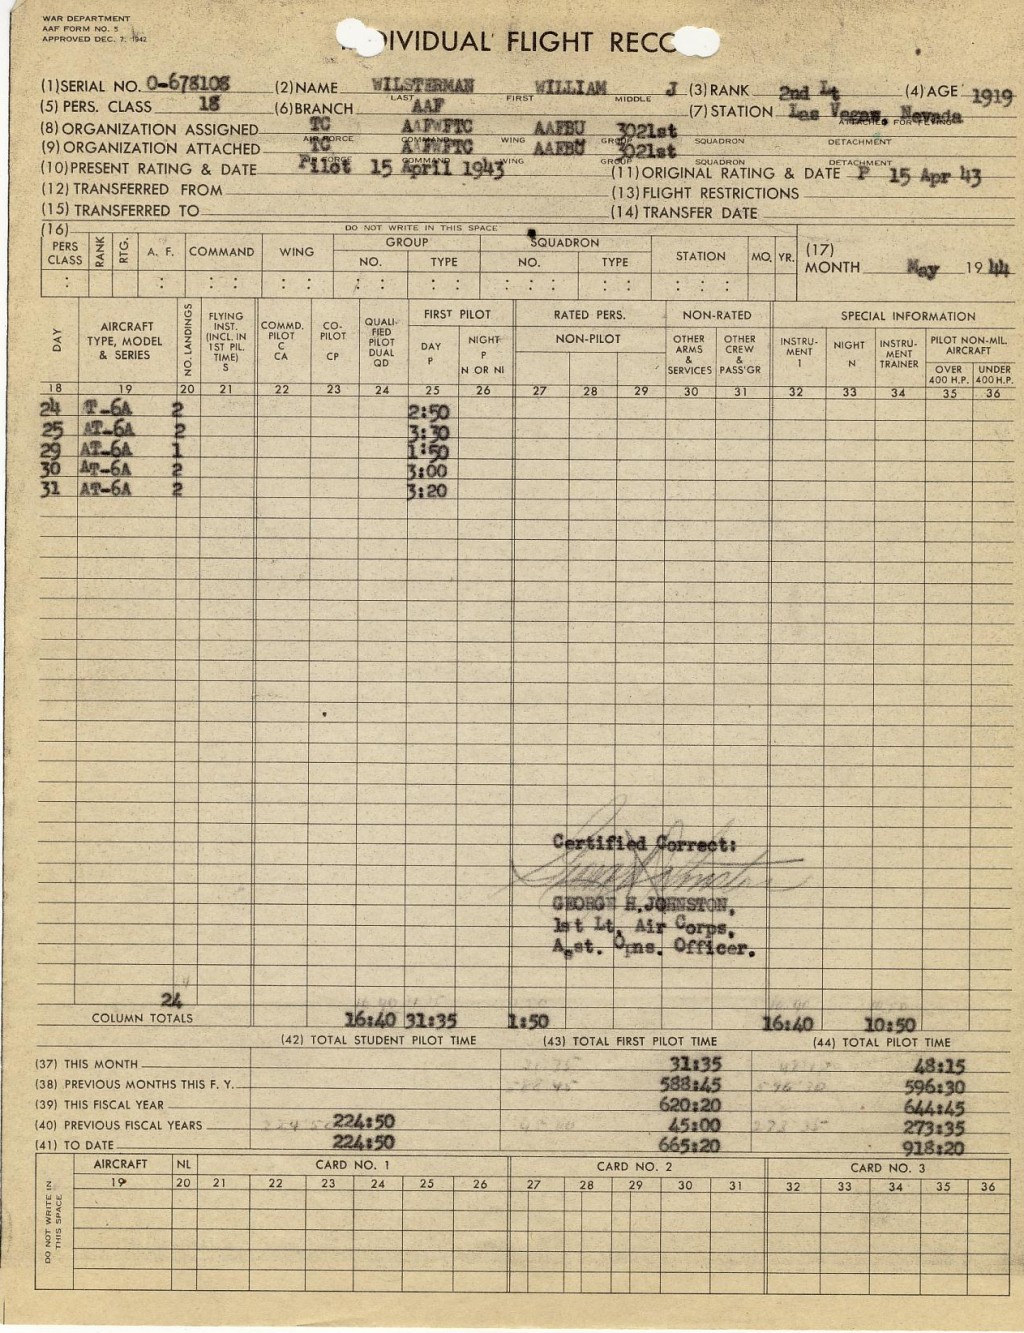 WAR DEPARTMENT
AAF FORM NO. 5
APPROVED DEC. 7, 1942
DIVIDUAL FLIGHT RECO
(1) SERIAL NO. O-678108 (2) NAME WILSTERMAN WILLIAM J (3) RANK 2nd Lt (4) AGE 1919
LAST FIRST MIDDLE
(5) PERS. CLASS 18 (6) BRANCH AAF (7) STATION Las Vegas, Nevada
ATTACHED FOR FLYING
(8) ORGANIZATION ASSIGNED TC AAFWFTC AAFBU 3021st
AIR FORCE COMMAND WING GROUP SQUADRON DETACHMENT
(9) ORGANIZATION ATTACHED TC AAFWFTC AAFBU 3021st
AIR FORCE COMMAND WING GROUP SQUADRON DETACHMENT
(10) PRESENT RATING & DATE Pilot 15 April 1943 (11) ORIGINAL RATING & DATE P 15 Apr 43
(12) TRANSFERRED FROM (13) FLIGHT RESTRICTIONS
(15) TRANSFERRED TO (14) TRANSFER DATE
(16) DO NOT WRITE IN THIS SPACE
PERS CLASS RANK RTG. A. F. COMMAND WING GROUP NO. TYPE SQUADRON NO. TYPE STATION MO. YR. (17) MONTH May 1944
DAY AIRCRAFT TYPE, MODEL & SERIES NO. LANDINGS FLYING INST. (INCL. IN 1ST PIL. TIME) S COMMD. PILOT C CA CO-PILOT CP QUALI-FIED PILOT DUAL QD FIRST PILOT DAY P NIGHT P N OR NI RATED PERS. NON-PILOT NON-RATED OTHER ARMS & SERVICES OTHER CREW & PASS'GR SPECIAL INFORMATION INSTRU-MENT I NIGHT N INSTRU-MENT TRAINER PILOT NON-MIL. AIRCRAFT OVER 400 H.P. UNDER 400 H.P.
18 19 20 21 22 23 24 25 26 27 28 29 30 31 32 33 34 35 36
24 T-6A 2 2:50
25 AT-6A 2 3:30
29 AT-6A 1 1:50
30 AT-6A 2 3:00
31 AT-6A 2 3:20
Certified Correct:
GEORGE H. JOHNSTON,
1st Lt, Air Corps,
Asst. Opns. Officer.
24
COLUMN TOTALS 16:40 31:35 1:50 16:40 10:50
(42) TOTAL STUDENT PILOT TIME (43) TOTAL FIRST PILOT TIME (44) TOTAL PILOT TIME
(37) THIS MONTH 31:35 48:15
(38) PREVIOUS MONTHS THIS F. Y. 588:45 596:30
(39) THIS FISCAL YEAR 620:20 644:45
(40) PREVIOUS FISCAL YEARS 224:50 45:00 273:35
(41) TO DATE 224:50 665:20 918:20
DO NOT WRITE IN THIS SPACE
AIRCRAFT NL CARD NO. 1 CARD NO. 2 CARD NO. 3
19 20 21 22 23 24 25 26 27 28 29 30 31 32 33 34 35 36